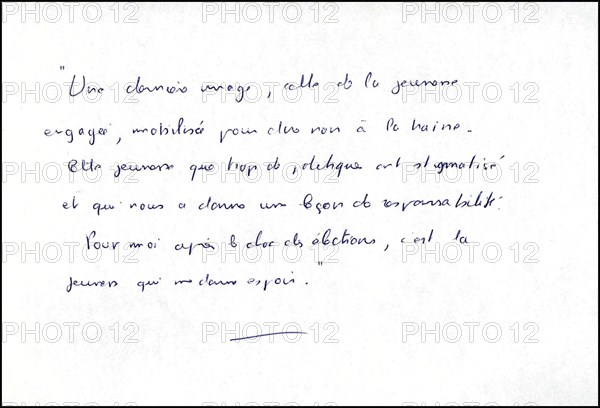 "Une dernière image, celle de la jeunesse
engagée, mobilisée pour dire non à la haine.
Cette jeunesse que trop de politiques ont stigmatisé
et qui nous a donné une leçon de responsabilité.
Pour moi après le choc des élections, c'est la
jeunesse qui me donne espoir."
PHOTO 12